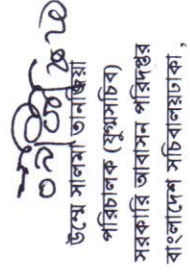 উম্মে সালমা তানজিয়া
পরিচালক (যুগ্মসচিব)
সরকারি আবাসন পরিদপ্তর
বাংলাদেশ সচিবালয়ঢাকা,